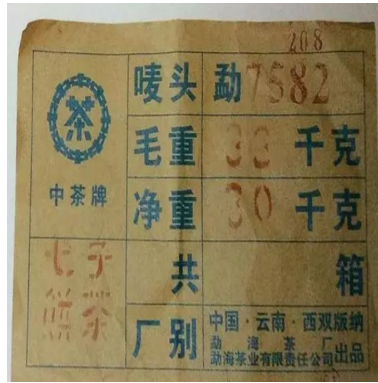 208
茶
中茶牌
唛头 勐7582
毛重 33 千克
净重 30 千克
七子
饼茶
共 箱
厂别 中国·云南·西双版纳
勐海茶厂
勐海茶业有限责任公司 出品